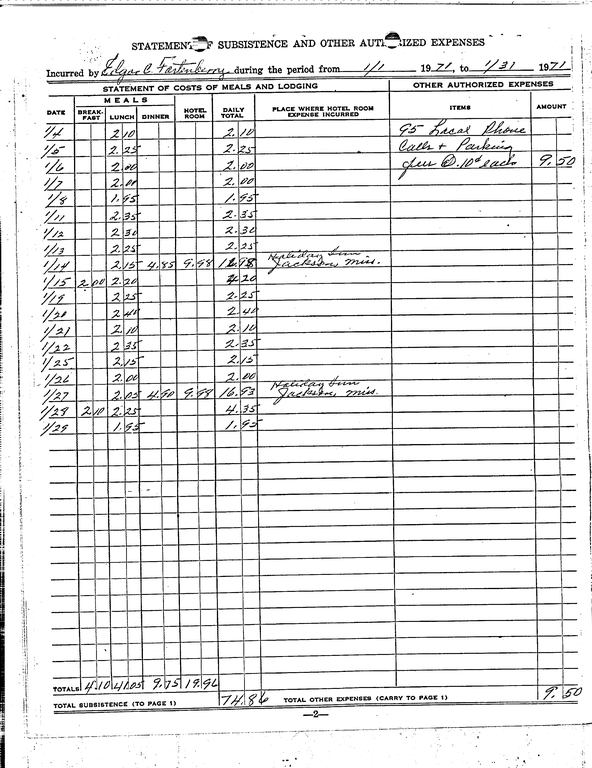 STATEMENT OF SUBSISTENCE AND OTHER AUTHORIZED EXPENSES
Incurred by Edgar C Fortenberry during the period from 1/1 1971, to 1/31 1971
STATEMENT OF COSTS OF MEALS AND LODGING OTHER AUTHORIZED EXPENSES
DATE MEALS BREAK-FAST LUNCH DINNER HOTEL ROOM DAILY TOTAL PLACE WHERE HOTEL ROOM EXPENSE INCURRED ITEMS AMOUNT
1/4 2.10 2.10 95 Local Phone
1/5 2.25 2.25 Calls + Parking
1/6 2.00 2.00 @ .10¢ each 9.50
1/7 2.00 2.00
1/8 1.95 1.95
1/11 2.35 2.35
1/12 2.30 2.30
1/13 2.25 2.25
1/14 2.15 4.85 9.98 16.98 Holiday Inn Jackson, Miss.
1/15 2.00 2.20 4.20
1/19 2.25 2.25
1/20 2.40 2.40
1/21 2.10 2.10
1/22 2.35 2.35
1/25 2.15 2.15
1/26 2.00 2.00
1/27 2.05 4.90 9.98 16.93 Holiday Inn Jackson, Miss.
1/28 2.10 2.25 4.35
1/29 1.95 1.95
TOTALS 4.10 41.05 9.75 19.96
TOTAL SUBSISTENCE (TO PAGE 1) 74.86 TOTAL OTHER EXPENSES (CARRY TO PAGE 1) 9.50
—2—